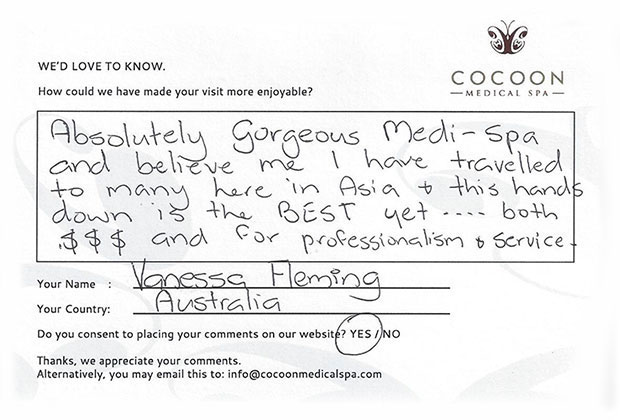 COCOON
MEDICAL SPA
WE'D LOVE TO KNOW.
How could we have made your visit more enjoyable?
Absolutely Gorgeous Medi-Spa
and believe me I have travelled
to many here in Asia & this hands
down is the BEST yet ---- both
$$$ and for professionalism & service.
Your Name : Vanessa Fleming
Your Country: Australia
Do you consent to placing your comments on our website? YES / NO
Thanks, we appreciate your comments.
Alternatively, you may email this to: info@cocoonmedicalspa.com